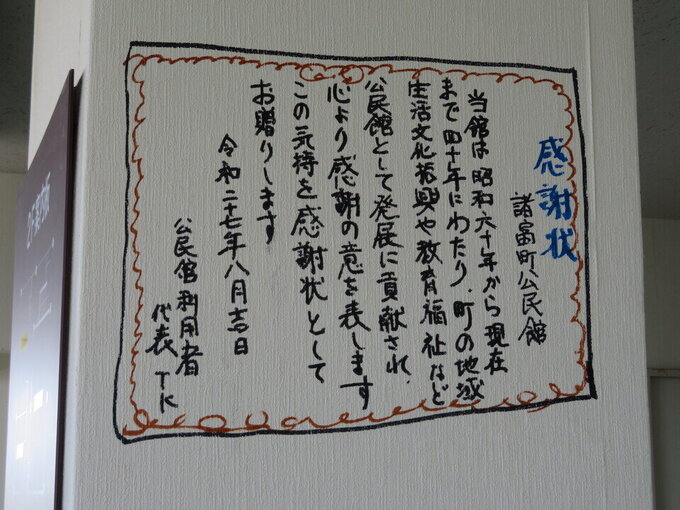 感謝状
諸富町公民館
当館は昭和六十年から現在
まで四十年にわたり、町の地域
生活文化振興や教育福祉など
公民館として発展に貢献され、
心より感謝の意を表します
この気持を感謝状として
お贈りします
令和二十七年八月吉日
公民館利用者
代表 TK
2F案内板